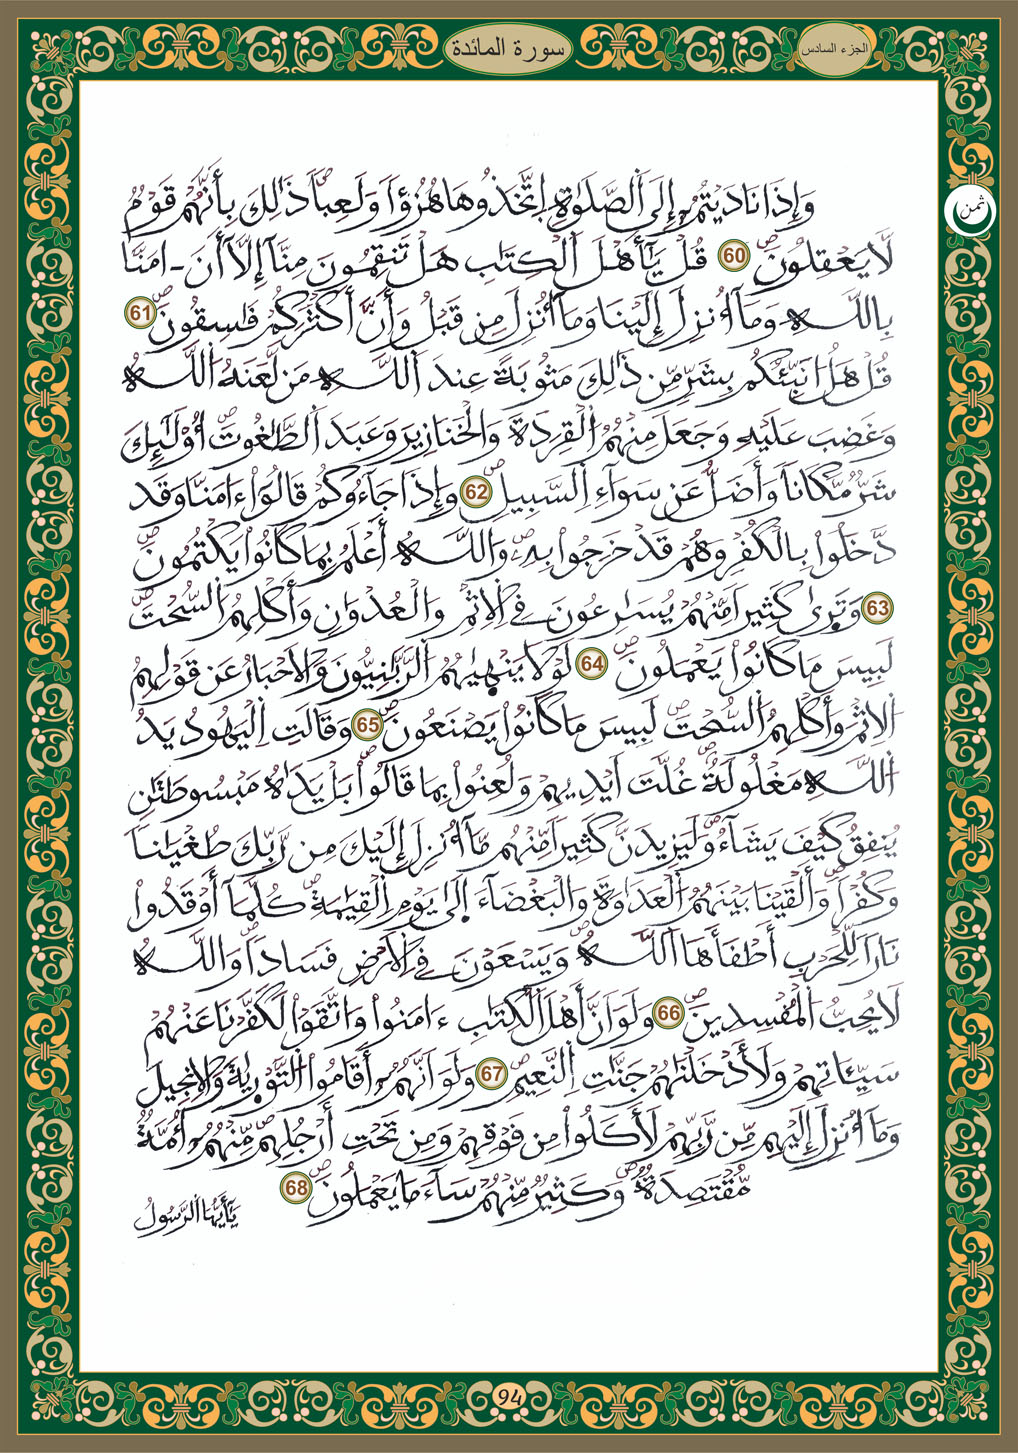 الجزء السادس
سورة المائدة
ثمن
وَإِذَا نَادَيْتُمُۥٓ إِلَى اَ۬لصَّلَوٰةِ اِ۪تَّخَذُوهَا هُزُؤاٗ وَلَعِباٗ ذَٰلِكَ بِأَنَّهُمْ قَوْمٞ
لَّا يَعْقِلُونَ 60 قُلْ يَٰٓأَهْلَ اَ۬لْكِتَٰبِ هَلْ تَنقِمُونَ مِنَّآ إِلَّآ أَنَ ـ امَنَّا
بِاللَّهِ وَمَآ أُنزِلَ إِلَيْنَا وَمَآ أُنزِلَ مِن قَبْلُ وَأَنَّ أَكْثَرَكُمْ فَٰسِقُونَ 61
قُلْ هَلُ ا۟نَبِّئُكُم بِشَرّٖ مِّن ذَٰلِكَ مَثُوبَةً عِندَ اَ۬للَّهِ مَن لَّعَنَهُ اُ۬للَّهُ
وَغَضِبَ عَلَيْهِ وَجَعَلَ مِنْهُمُ اُ۬لْقِرَدَةَ وَالْخَنَازِيرَ وَعَبَدَ اَ۬لطَّٰغُوتَ أُوْلَٰٓئِكَ
شَرّٞ مَّكَاناٗ وَأَضَلُّ عَن سَوَآءِ اِ۬لسَّبِيلِ 62 وَإِذَا جَآءُوكُمْ قَالُوٓاْ ءَامَنَّا وَقَد
دَّخَلُواْ بِالْكُفْرِ وَهُمْ قَدْ خَرَجُواْ بِهِۦ وَاللَّهُ أَعْلَمُ بِمَا كَانُواْ يَكْتُمُونَ
63 وَتَرَىٰ كَثِيراٗ مِّنْهُمْ يُسَٰرِعُونَ فِے اِ۬لِاثْمِ وَالْعُدْوَٰنِ وَأَكْلِهِمُ اُ۬لسُّحْتَ
لَبِيسَ مَا كَانُواْ يَعْمَلُونَ 64 لَوْلَا يَنْهَيٰهُمُ اُ۬لرَّبَّٰنِيُّونَ وَالَاحْبَارُ عَن قَوْلِهِمُ
اُ۬لِاثْمَ وَأَكْلِهِمُ اُ۬لسُّحْتَ لَبِيسَ مَا كَانُواْ يَصْنَعُونَ 65 وَقَالَتِ اِ۬لْيَهُودُ يَدُ
اُ۬للَّهِ مَغْلُولَةٌ غُلَّتَ اَيْدِيهِمْ وَلُعِنُواْ بِمَا قَالُواْ بَلْ يَدَٰهُ مَبْسُوطَتَٰنِ
يُنفِقُ كَيْفَ يَشَآءُ وَلَيَزِيدَنَّ كَثِيراٗ مِّنْهُم مَّآ أُنزِلَ إِلَيْكَ مِن رَّبِّكَ طُغْيَٰناٗ
وَكُفْراٗ وَأَلْقَيْنَا بَيْنَهُمُ اُ۬لْعَدَٰوَةَ وَالْبَغْضَآءَ اِلَىٰ يَوْمِ اِ۬لْقِيَٰمَةِ كُلَّمَآ أَوْقَدُواْ
نَاراٗ لِّلْحَرْبِ أَطْفَأَهَا اَ۬للَّهُ وَيَسْعَوْنَ فِے اِ۬لَارْضِ فَسَاداٗ وَاللَّهُ
لَا يُحِبُّ اُ۬لْمُفْسِدِينَ 66 وَلَوَ اَنَّ أَهْلَ اَ۬لْكِتَٰبِ ءَامَنُواْ وَاتَّقَوْاْ لَكَفَّرْنَا عَنْهُمْ
سَيِّـَٔاتِهِمْ وَلَأَدْخَلْنَٰهُمْ جَنَّٰتِ اِ۬لنَّعِيمِ 67 وَلَوَ اَنَّهُمُۥٓ أَقَامُواْ اُ۬لتَّوْرَيٰةَ وَالِانجِيلَ
وَمَآ أُنزِلَ إِلَيْهِم مِّن رَّبِّهِمْ لَأَكَلُواْ مِن فَوْقِهِمْ وَمِن تَحْتِ أَرْجُلِهِم مِّنْهُمُۥٓ أُمَّةٞ
مُّقْتَصِدَةٞ وَكَثِيرٞ مِّنْهُمْ سَآءَ مَا يَعْمَلُونَ 68
يَٰٓأَيُّهَا اَ۬لرَّسُولُ
94